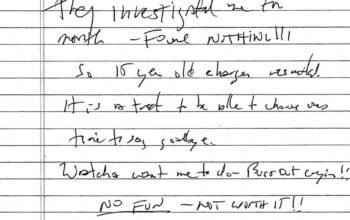 They investigated me for
month – FOUND NOTHING!!!
So 15 year old charges resulted!
It is a treat to be able to choose ones
time to say goodbye.
Watcha want me to do – Burst out cryin!!
NO FUN – NOT WORTH IT!!